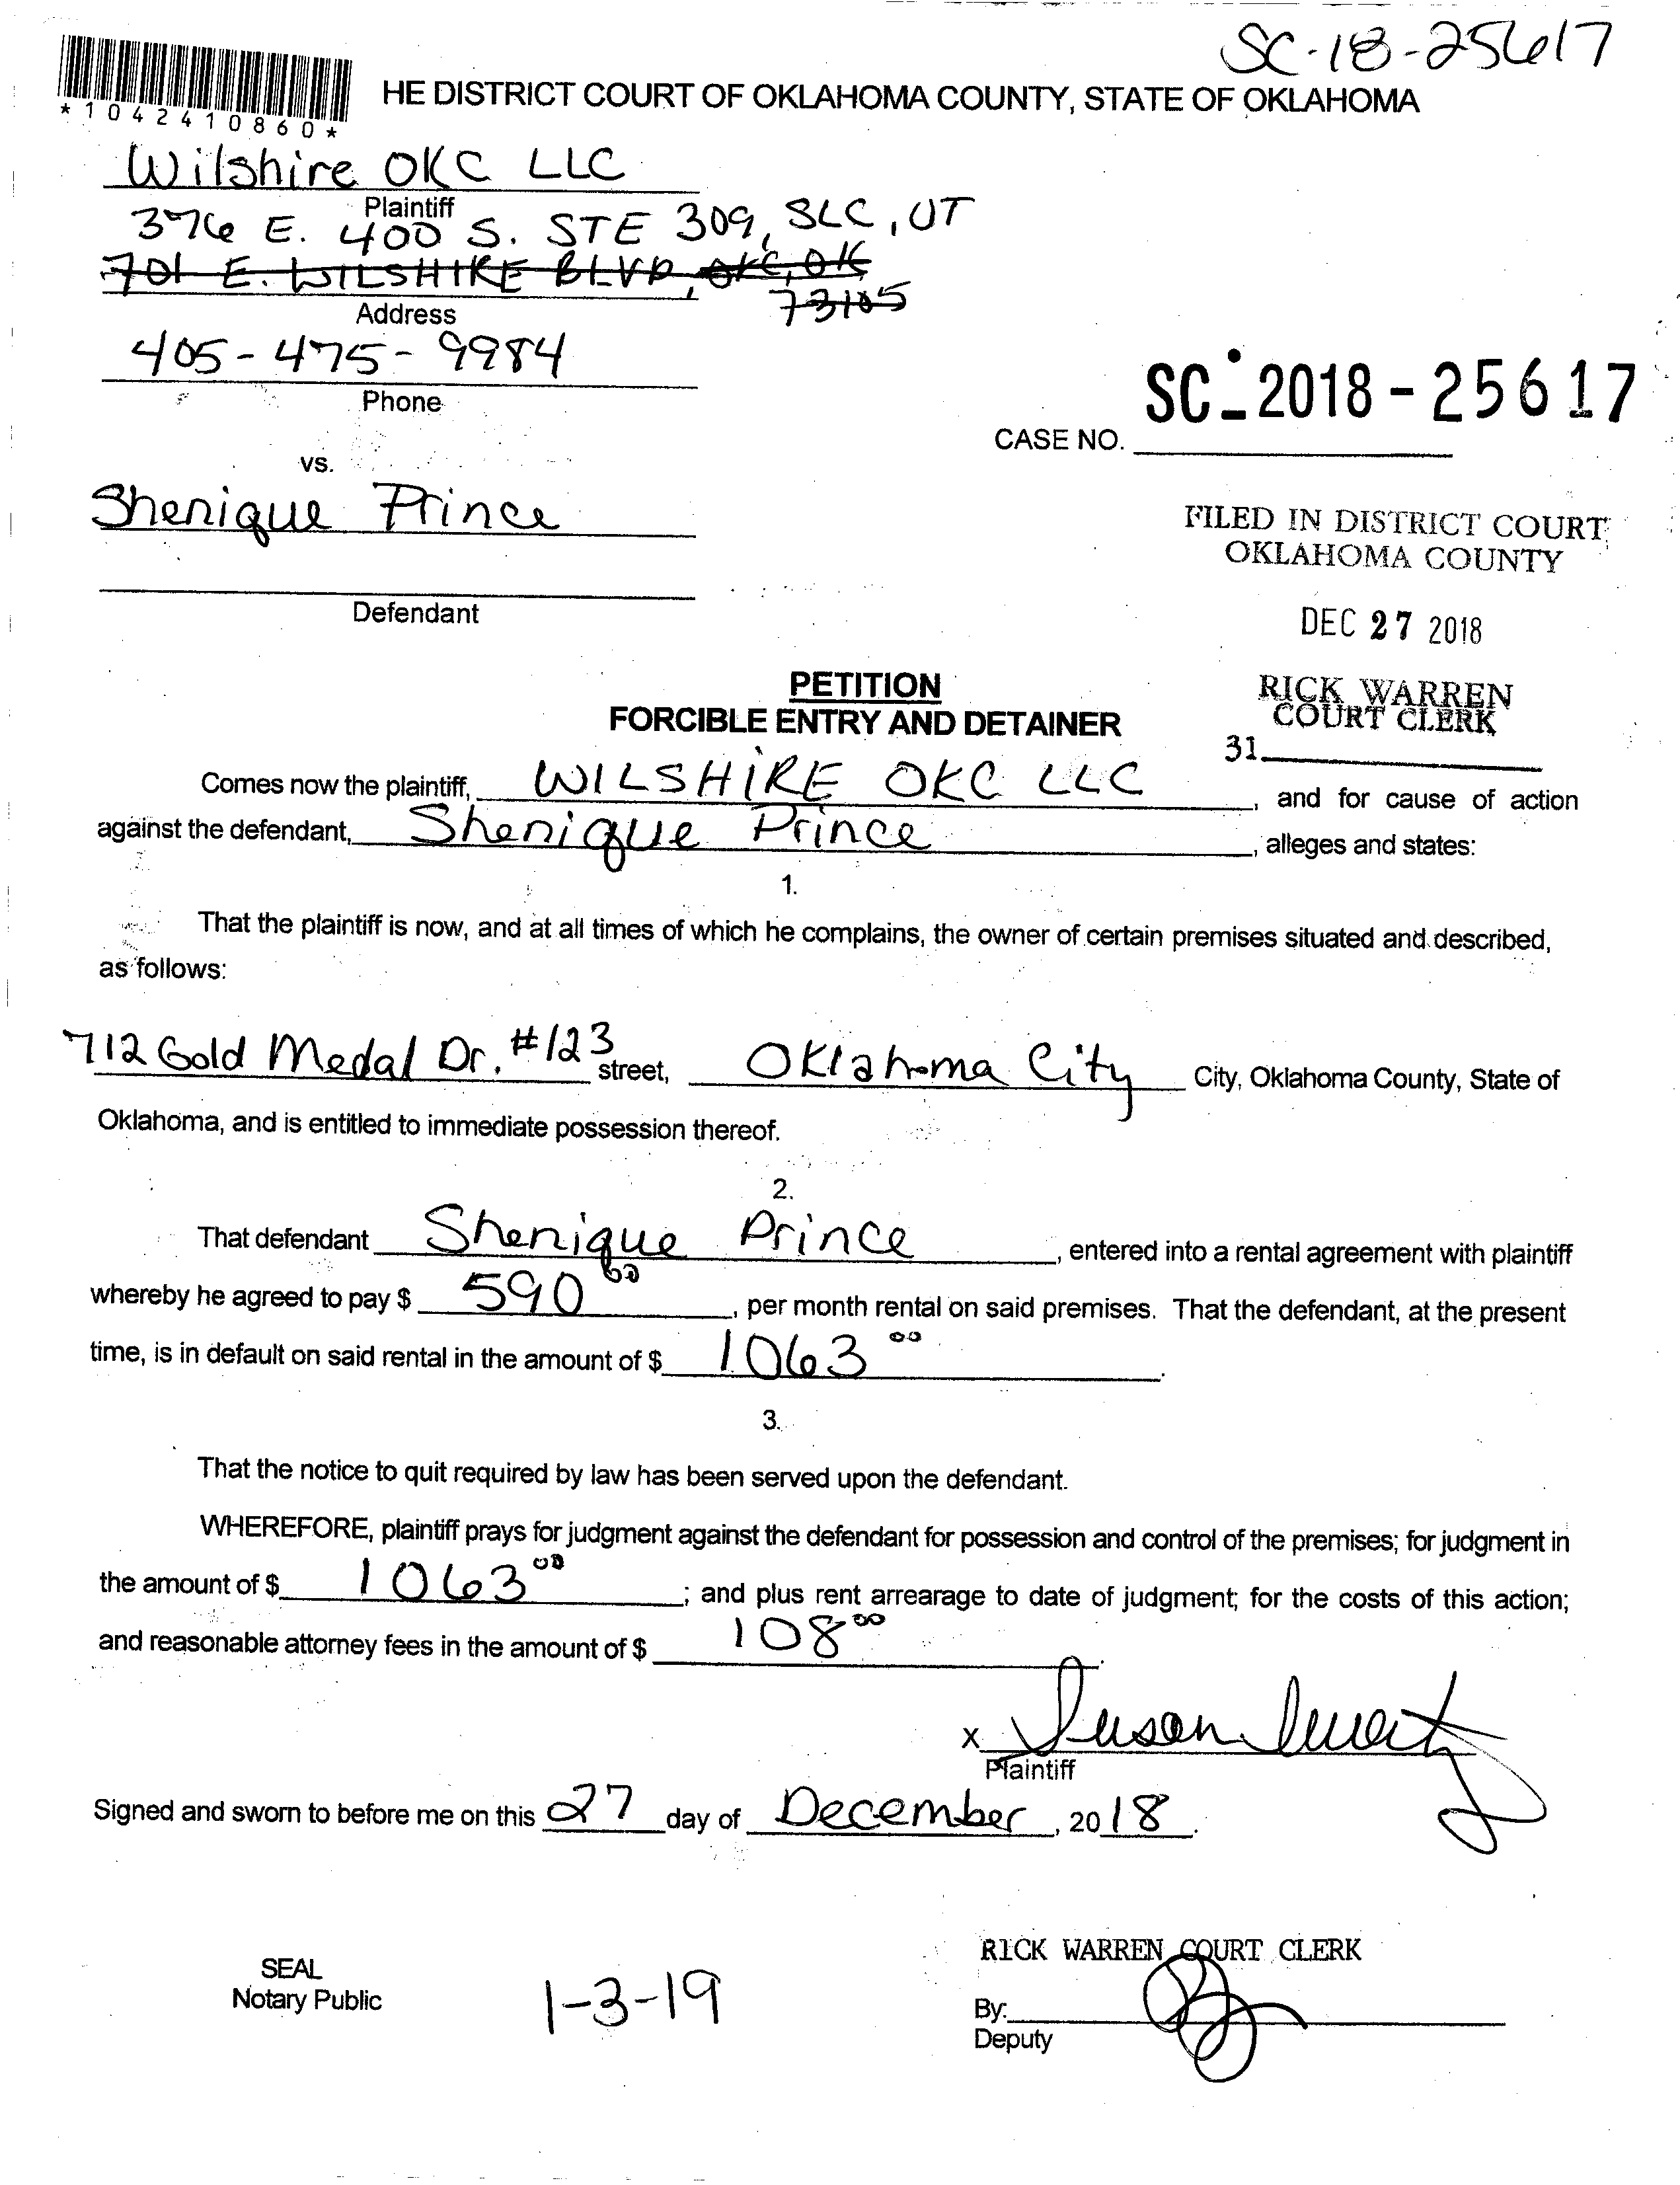 SC-18-25617
*1042410860*
HE DISTRICT COURT OF OKLAHOMA COUNTY, STATE OF OKLAHOMA
Wilshire OKC LLC
Plaintiff
376 E. 400 S. STE 309, SLC, UT
701 E. WILSHIRE BLVD, OKC, OK
73105
Address
405-475-9984
Phone
SC-2018-25617
CASE NO.
vs.
Shenique Prince
FILED IN DISTRICT COURT
OKLAHOMA COUNTY
Defendant
DEC 27 2018
PETITION
FORCIBLE ENTRY AND DETAINER
RICK WARREN
COURT CLERK
31
Comes now the plaintiff, WILSHIRE OKC LLC, and for cause of action
against the defendant, Shenique Prince, alleges and states:
1.
That the plaintiff is now, and at all times of which he complains, the owner of certain premises situated and described,
as follows:
712 Gold Medal Dr. #123 street, Oklahoma City City, Oklahoma County, State of
Oklahoma, and is entitled to immediate possession thereof.
2.
That defendant Shenique Prince, entered into a rental agreement with plaintiff
whereby he agreed to pay $ 590 00, per month rental on said premises. That the defendant, at the present
time, is in default on said rental in the amount of $ 1063 00.
3.
That the notice to quit required by law has been served upon the defendant.
WHEREFORE, plaintiff prays for judgment against the defendant for possession and control of the premises; for judgment in
the amount of $ 1063 00; and plus rent arrearage to date of judgment; for the costs of this action;
and reasonable attorney fees in the amount of $ 108 00.
x Susan
Plaintiff
Signed and sworn to before me on this 27 day of December, 2018.
RICK WARREN COURT CLERK
SEAL
Notary Public
1-3-19
By:
Deputy